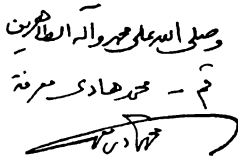 وصلى الله على محمد وآله الطاهرين
قم - محمد هادي معرفة